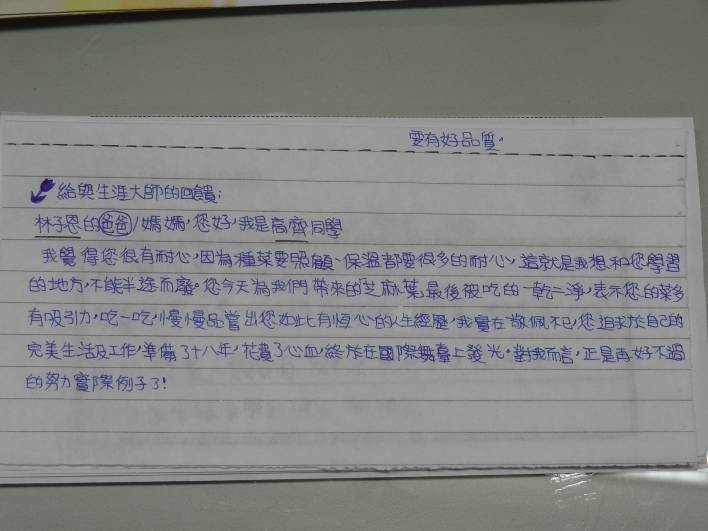 要有好品質。
給與生涯大師的回饋:
林子恩的爸爸/媽媽,您好,我是喬齊同學
我覺得您很有耐心,因為種菜要照顧、保溫都要很多的耐心,這就是我想和您學習
的地方,不能半途而廢,您今天為我們帶來的芝麻葉最後被吃的一乾二淨,表示您的菜多
有吸引力,吃一吃,慢慢品嘗出您如此有恆心的人生經歷,我實在敬佩不已,您追求於自己的
完美生活及工作,準備了十八年,花費了心血,終於在國際舞臺上發光。對我而言,正是再好不過
的努力實際例子了!